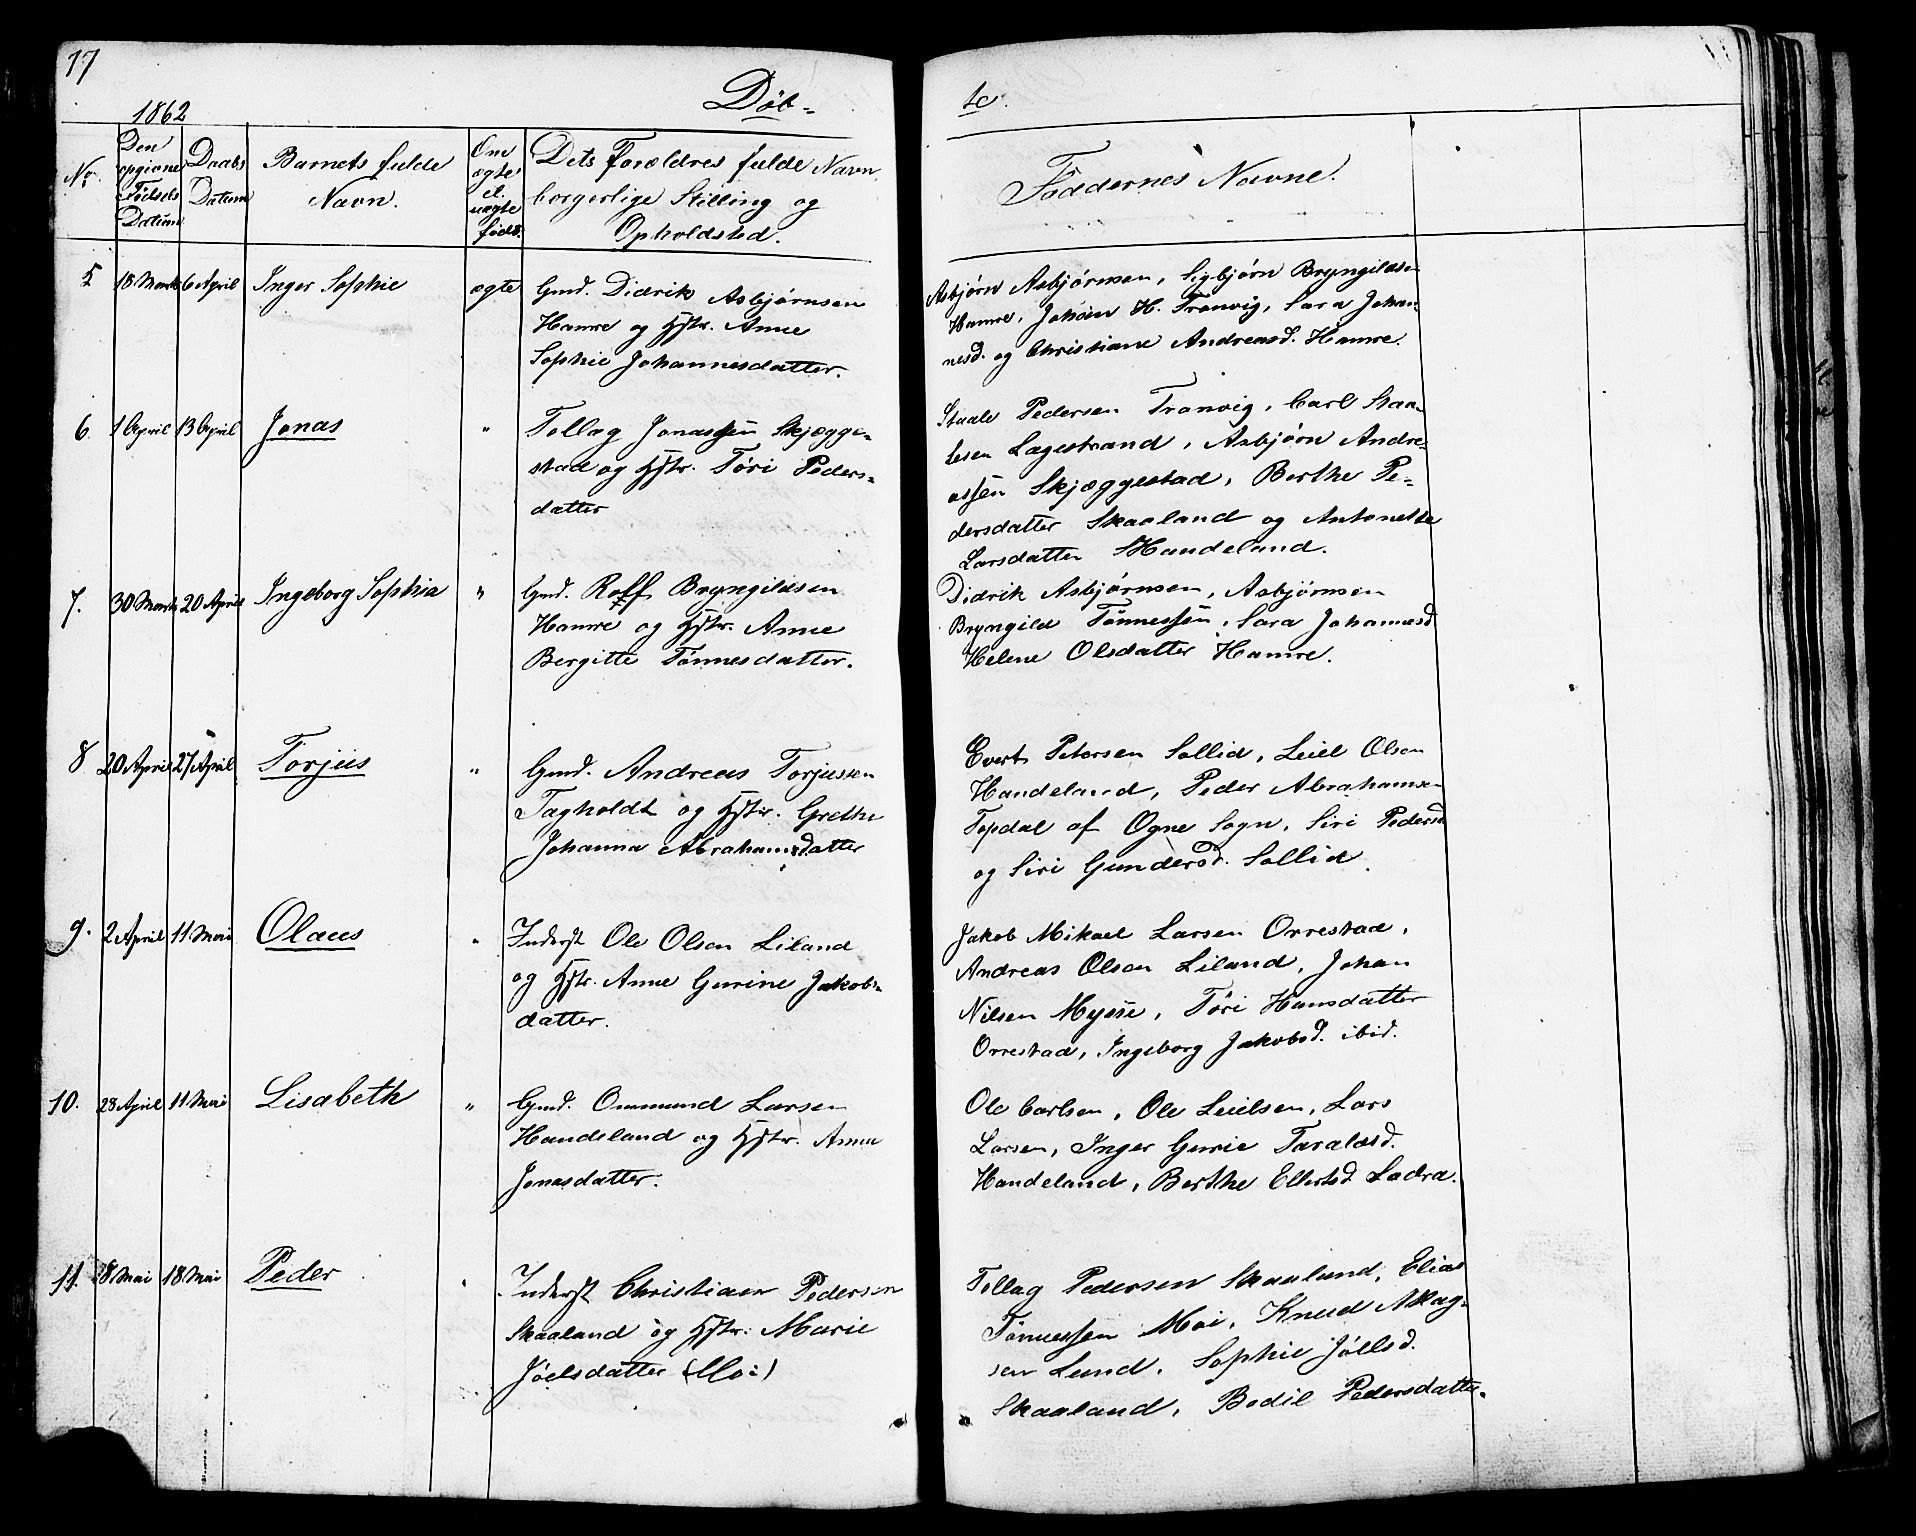 17
1862 Døb- te.
No. Den opgivne Fødsels Datum Daabs Datum Barnets fulde Navn. Om ægte el. uægte født. Dets Forældres fulde Navn, borgerlige Stilling og Opholdsted. Faddernes Navne.
5 18 Marts 6 April Inger Sophie ægte Gmd. Didrik Asbjørnsen
Hamre og Hstr. Anne
Sophie Johannesdatter.
Asbjørn Asbjørnsen, Sigbjørn Bryngilsen
Hamre, Johan H. Tronvig, Sara Johan-
nesd. og Christiane Andreasd. Hamre.
6 1 April 13 April Jonas " Tollag Jonassen Skjægge-
stad og Hstr. Tøri Peders-
datter
Staale Pedersen Tronvig, Carl Staa-
lesen Lagestrand, Asbjørn Andre-
assen Skjæggestad, Berthe Pe-
dersdatter Skaaland og Antonette
Larsdatter Handeland.
7. 30 Marts 20 April Ingeborg Sophia " Gmd. Roff Bryngilsen
Hamre og Hstr. Anne
Bergitte Tønnesdatter.
Didrik Asbjørnsen, Asbjørnsen
Bryngild Tønnessen, Sara Johannesd.
Helene Olsdatter Hamre.
8 20 April 27 April Torjus " Gmd. Andreas Torjussen
Tagholdt og Hstr. Grethe
Johanna Abrahamsdatter
Evert Petersen Sollid, Leiel Olsen
Handeland, Peder Abrahamsen
Topdal af Ogne Sogn, Siri Pedersd.
og Siri Gundersd. Sollid.
9. 2 April 11. Mai Olaus " Inderst Ole Olsen Liland
og Hstr. Anne Gurine Jakobs-
datter.
Jakob Mikael Larsen Orrestad,
Andreas Olsen Liland, Johan
Nilsen Mysse, Tøri Hansdatter
Orrestad, Ingeborg Jakobsd. ibid.
10. 28 April 11. Mai Lisabeth " Gmd. Ommund Larsen
Handeland og Hstr. Anne
Jonasdatter.
Ole Carlsen, Ole Leielsen, Lars
Larsen, Inger Gurie Taraldsd.
Handeland, Berthe Ellertsd. Ladra.
11. 8 Mai 18. Mai Peder " Inderst Christian Pedersen
Skaaland og Hstr. Marie
Jøelsdatter (Moi)
Tollag Pedersen Skaaland, Elias
Tønnessen Moi, Knud Aag-
sen Lund, Sophie Jøelsd.
Skaaland, Bodil Pedersdatter.